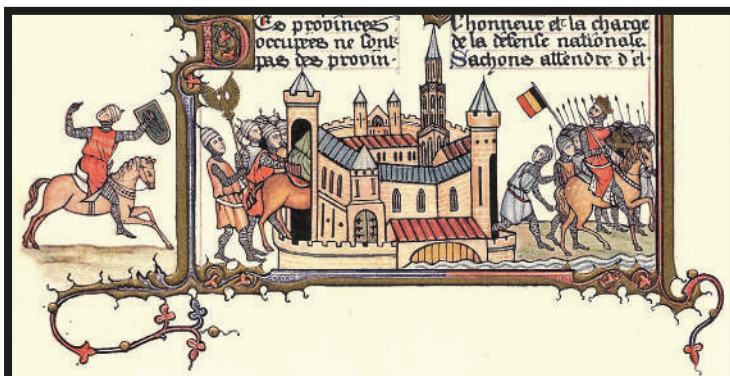 DEs provinces
occupees ne sont
pas des provin-
L'honneur et la charge
de la defense nationale.
Sachons attendre d'el-